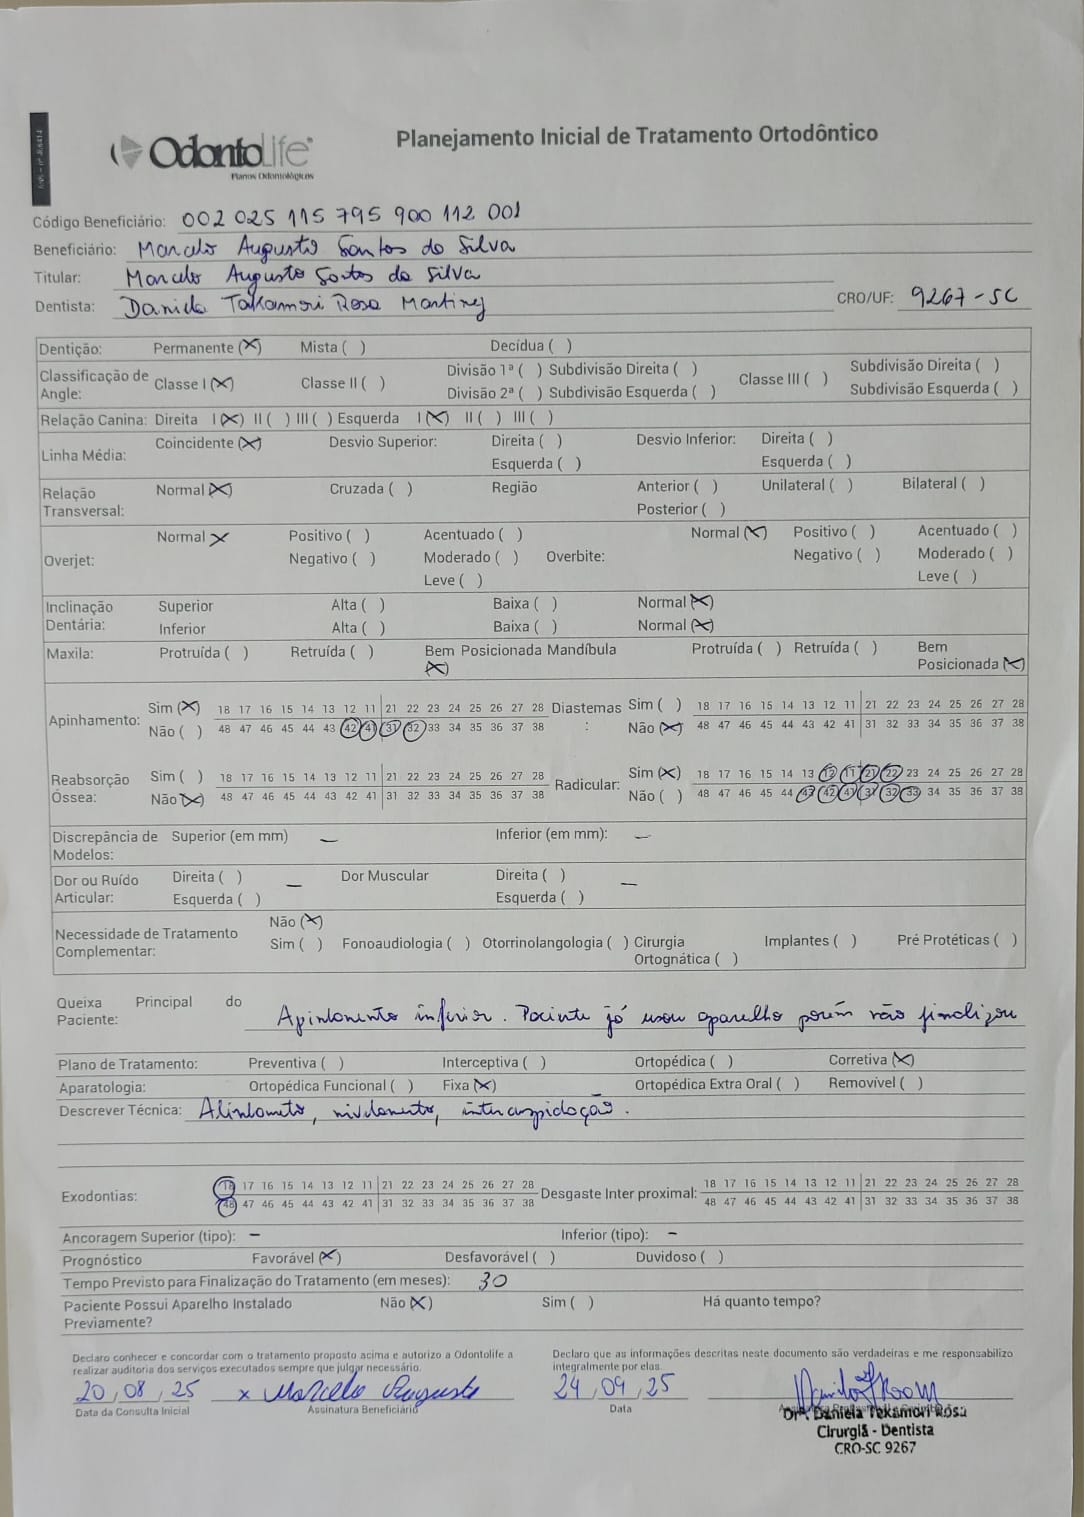 OdontoLife
Planos Odontológicos
Planejamento Inicial de Tratamento Ortodôntico
Código Beneficiário: 002 025 115 795 900 112 001
Beneficiário: Marcelo Augusto Santos da Silva
Titular: Marcelo Augusto Santos da Silva
Dentista: Daniela Takamori Rosa Martinez CRO/UF: 9267-SC
Dentição: Permanente (X) Mista ( ) Decídua ( )
Classificação de Angle: Classe I (X) Classe II ( ) Divisão 1ª ( ) Subdivisão Direita ( ) Classe III ( ) Subdivisão Direita ( )
Divisão 2ª ( ) Subdivisão Esquerda ( ) Subdivisão Esquerda ( )
Relação Canina: Direita I (X) II ( ) III ( ) Esquerda I (X) II ( ) III ( )
Linha Média: Coincidente (X) Desvio Superior: Direita ( ) Desvio Inferior: Direita ( )
Esquerda ( ) Esquerda ( )
Relação Transversal: Normal (X) Cruzada ( ) Região Anterior ( ) Unilateral ( ) Bilateral ( )
Posterior ( )
Overjet: Normal X Positivo ( ) Acentuado ( ) Overbite: Normal (X) Positivo ( ) Acentuado ( )
Negativo ( ) Moderado ( ) Negativo ( ) Moderado ( )
Leve ( ) Leve ( )
Inclinação Dentária: Superior Alta ( ) Baixa ( ) Normal (X)
Inferior Alta ( ) Baixa ( ) Normal (X)
Maxila: Protruída ( ) Retruída ( ) Bem Posicionada (X) Mandíbula Protruída ( ) Retruída ( ) Bem Posicionada (X)
Apinhamento: Sim (X) 18 17 16 15 14 13 12 11 21 22 23 24 25 26 27 28 Diastemas: Sim ( ) 18 17 16 15 14 13 12 11 21 22 23 24 25 26 27 28
Não ( ) 48 47 46 45 44 43 42 41 31 32 33 34 35 36 37 38 Não (X) 48 47 46 45 44 43 42 41 31 32 33 34 35 36 37 38
Reabsorção Óssea: Sim ( ) 18 17 16 15 14 13 12 11 21 22 23 24 25 26 27 28 Radicular: Sim (X) 18 17 16 15 14 13 12 11 21 22 23 24 25 26 27 28
Não (X) 48 47 46 45 44 43 42 41 31 32 33 34 35 36 37 38 Não ( ) 48 47 46 45 44 43 42 41 31 32 33 34 35 36 37 38
Discrepância de Modelos: Superior (em mm) – Inferior (em mm): –
Dor ou Ruído Articular: Direita ( ) – Dor Muscular Direita ( ) –
Esquerda ( ) Esquerda ( )
Necessidade de Tratamento Complementar: Não (X)
Sim ( ) Fonoaudiologia ( ) Otorrinolangologia ( ) Cirurgia Ortognática ( ) Implantes ( ) Pré Protéticas ( )
Queixa Principal do Paciente: Apinhamento inferior. Paciente já usou aparelho porém não finalizou
Plano de Tratamento: Preventiva ( ) Interceptiva ( ) Ortopédica ( ) Corretiva (X)
Aparatologia: Ortopédica Funcional ( ) Fixa (X) Ortopédica Extra Oral ( ) Removível ( )
Descrever Técnica: Alinhamento, nivelamento, intercuspidação.
Exodontias: 18 17 16 15 14 13 12 11 21 22 23 24 25 26 27 28 Desgaste Inter proximal: 18 17 16 15 14 13 12 11 21 22 23 24 25 26 27 28
48 47 46 45 44 43 42 41 31 32 33 34 35 36 37 38 48 47 46 45 44 43 42 41 31 32 33 34 35 36 37 38
Ancoragem Superior (tipo): – Inferior (tipo): –
Prognóstico Favorável (X) Desfavorável ( ) Duvidoso ( )
Tempo Previsto para Finalização do Tratamento (em meses): 30
Paciente Possui Aparelho Instalado Previamente? Não (X) Sim ( ) Há quanto tempo?
Declaro conhecer e concordar com o tratamento proposto acima e autorizo a Odontolife a realizar auditoria dos serviços executados sempre que julgar necessário.
Declaro que as informações descritas neste documento são verdadeiras e me responsabilizo integralmente por elas.
20/08/25 x Marcelo Augusto 24/09/25
Data da Consulta Inicial Assinatura Beneficiário Data
Drª. Daniela Takamori Rosa
Cirurgiã - Dentista
CRO-SC 9267